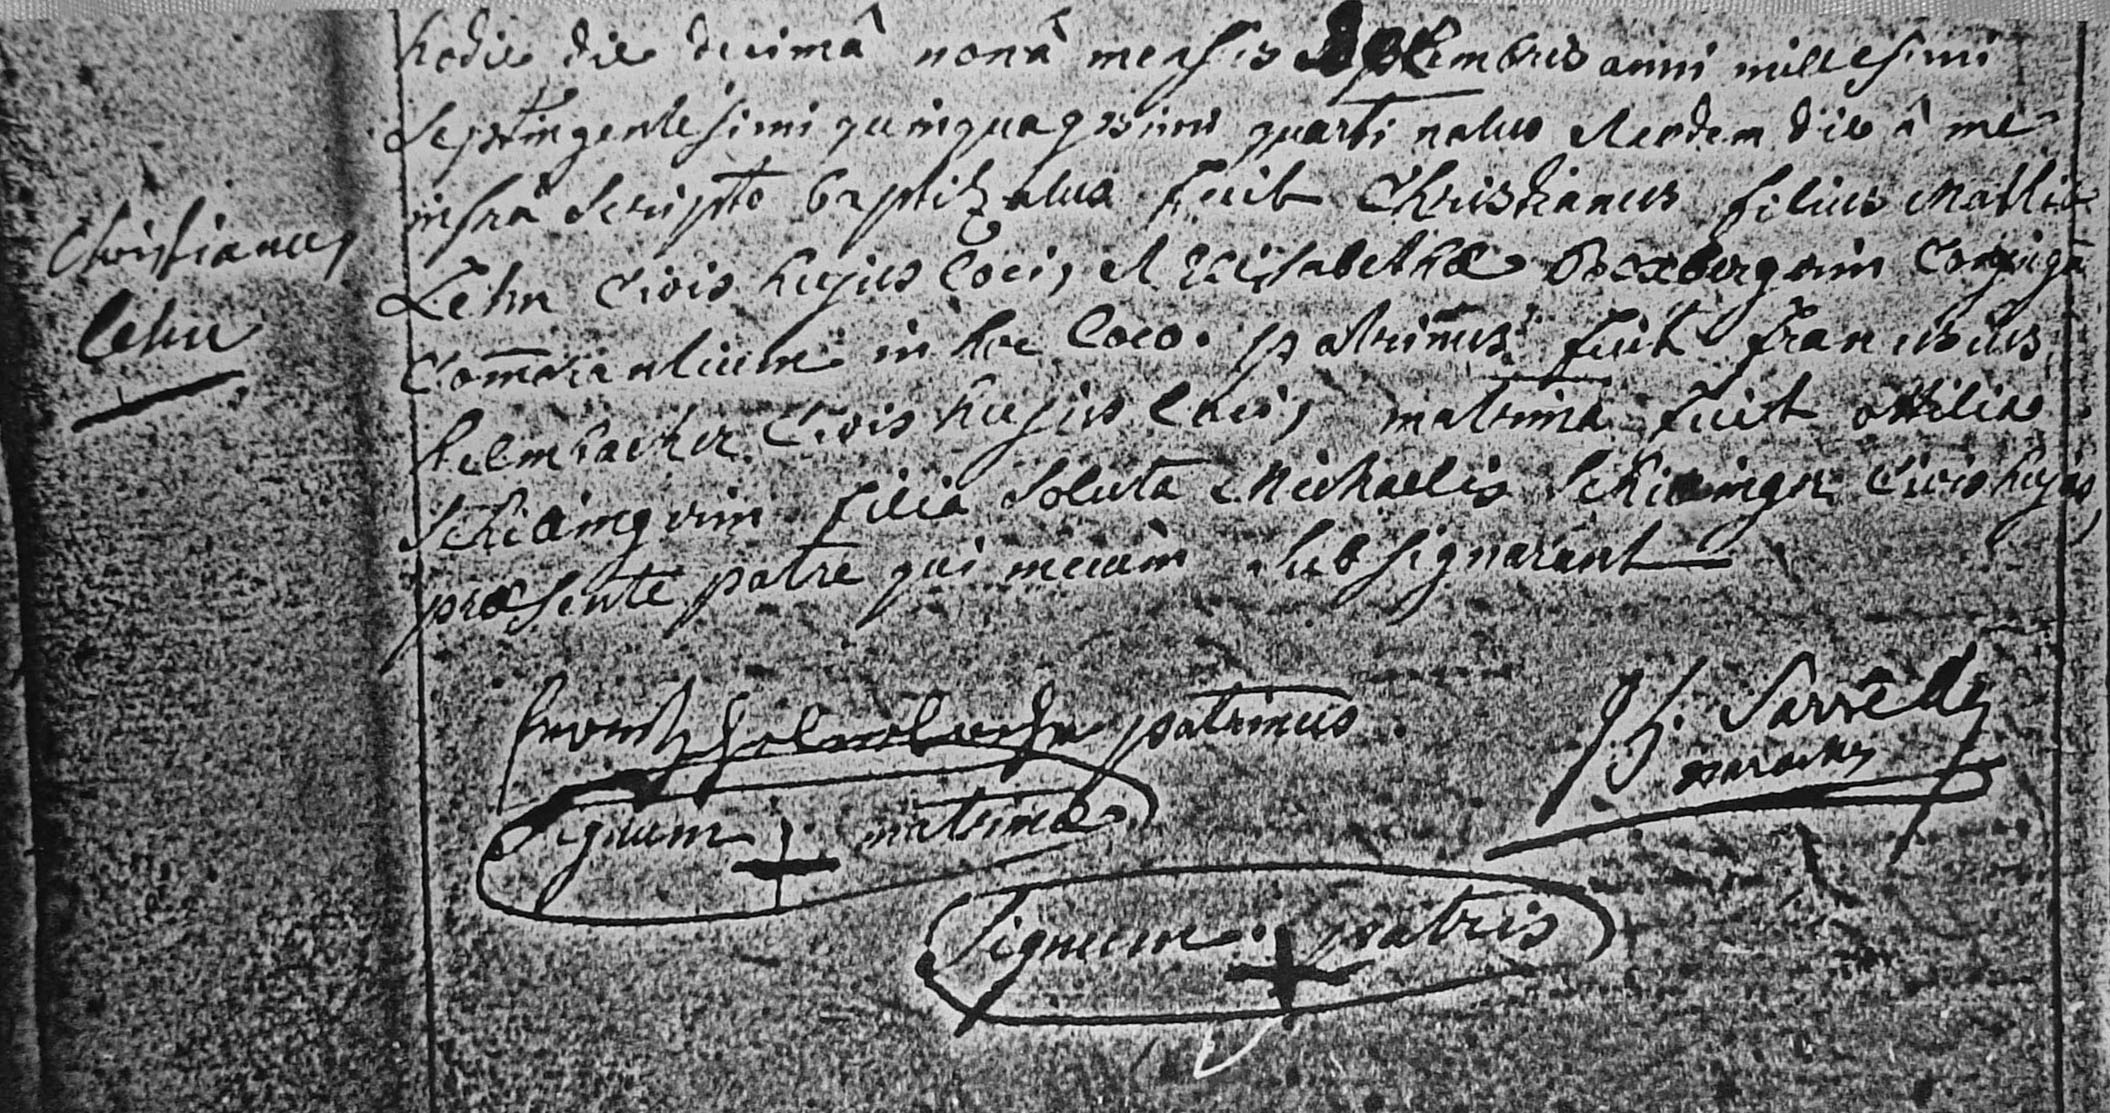 hodie die decimâ nonâ mensis Septembris anni millesimi
Septingentesimi quinquagesimi quarti natus et eodem die â me
infrâ Scripto baptizatus fuit Christianus filius Mathiæ
Christianus
Lehn Civis hujus loci, et Elisabethæ Boxbergerin Conjugū
Lehn
Com̄orantium in hoc loco. patrinus fuit franciscus
helmbacher Civis hujus loci, matrina fuit ottilia
filia Soluta Michaelis Civis hujus
præsente patre qui mecum Subsignarunt
frantz helmbacher patrinus
Signum + matrinæ
Signum + patris